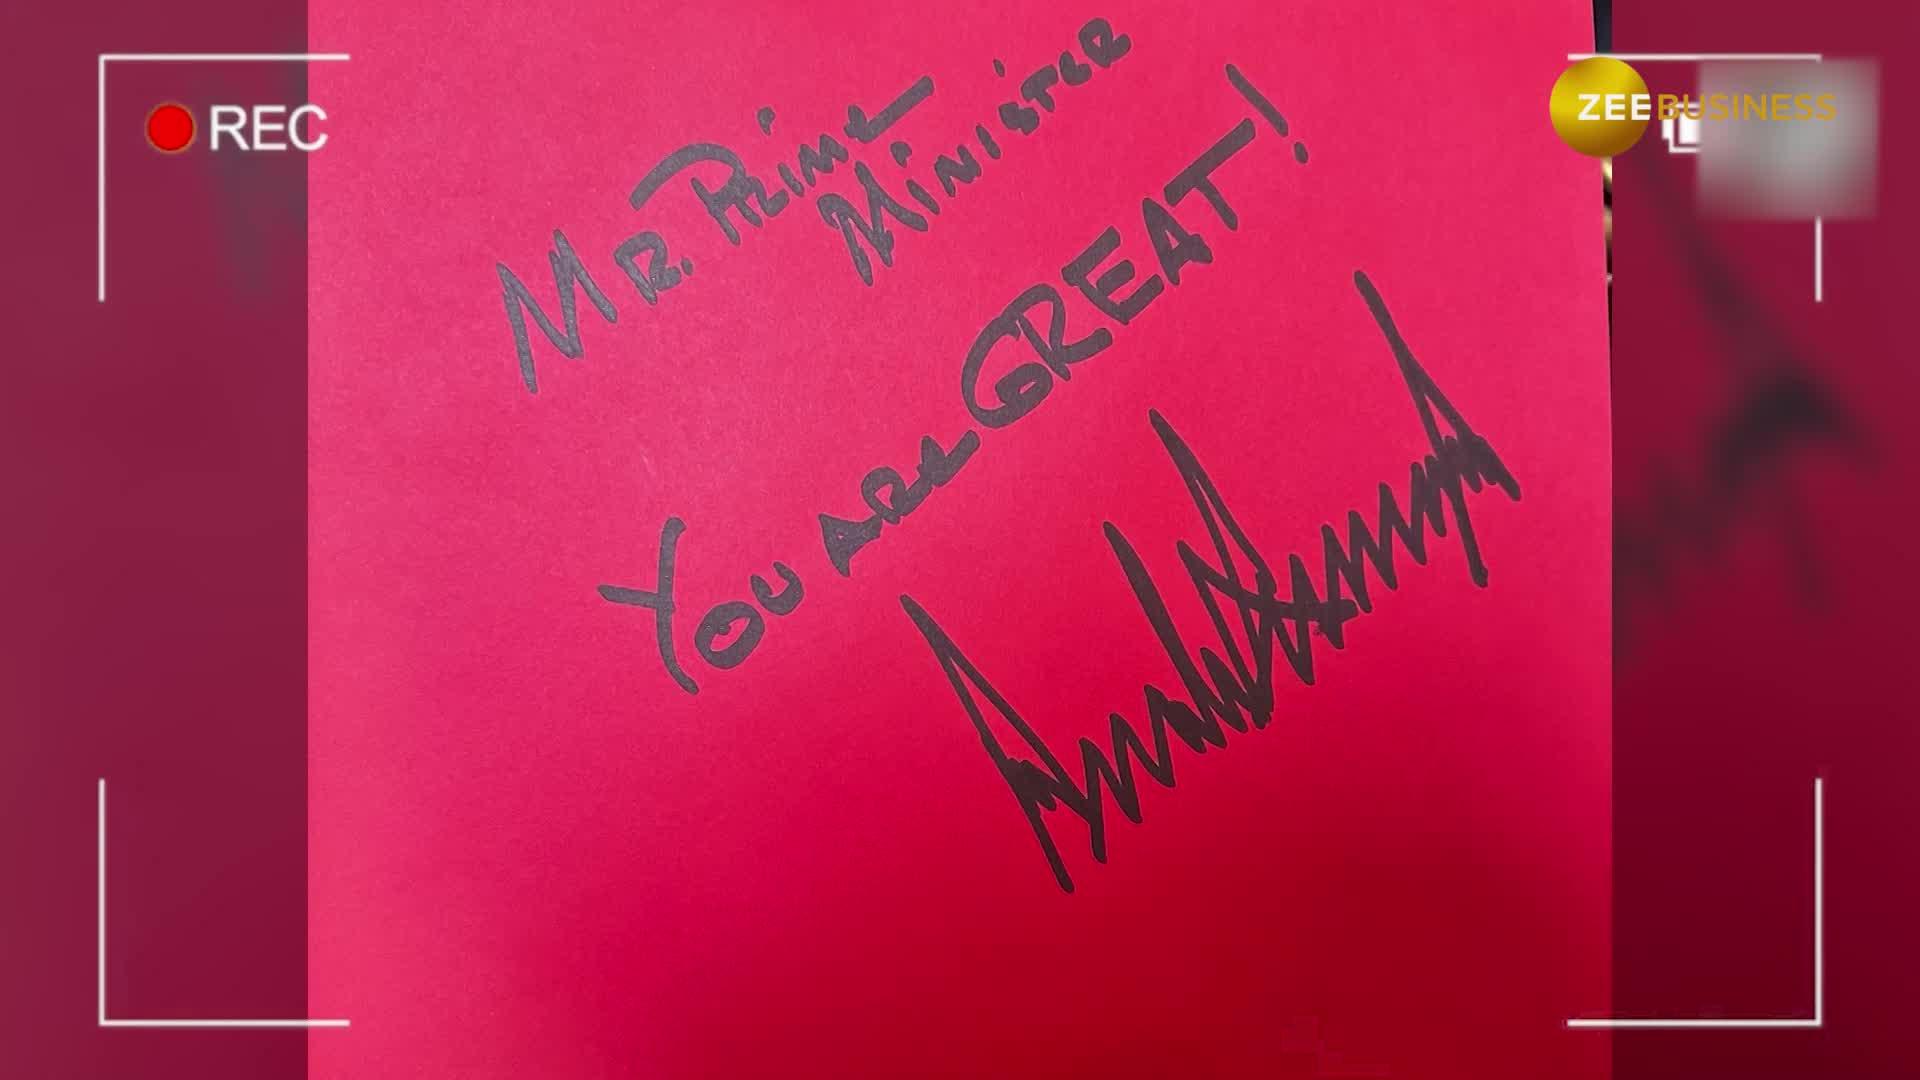 REC
ZEE BUSINESS
MR. PRIME
MINISTER
YOU ARE GREAT!